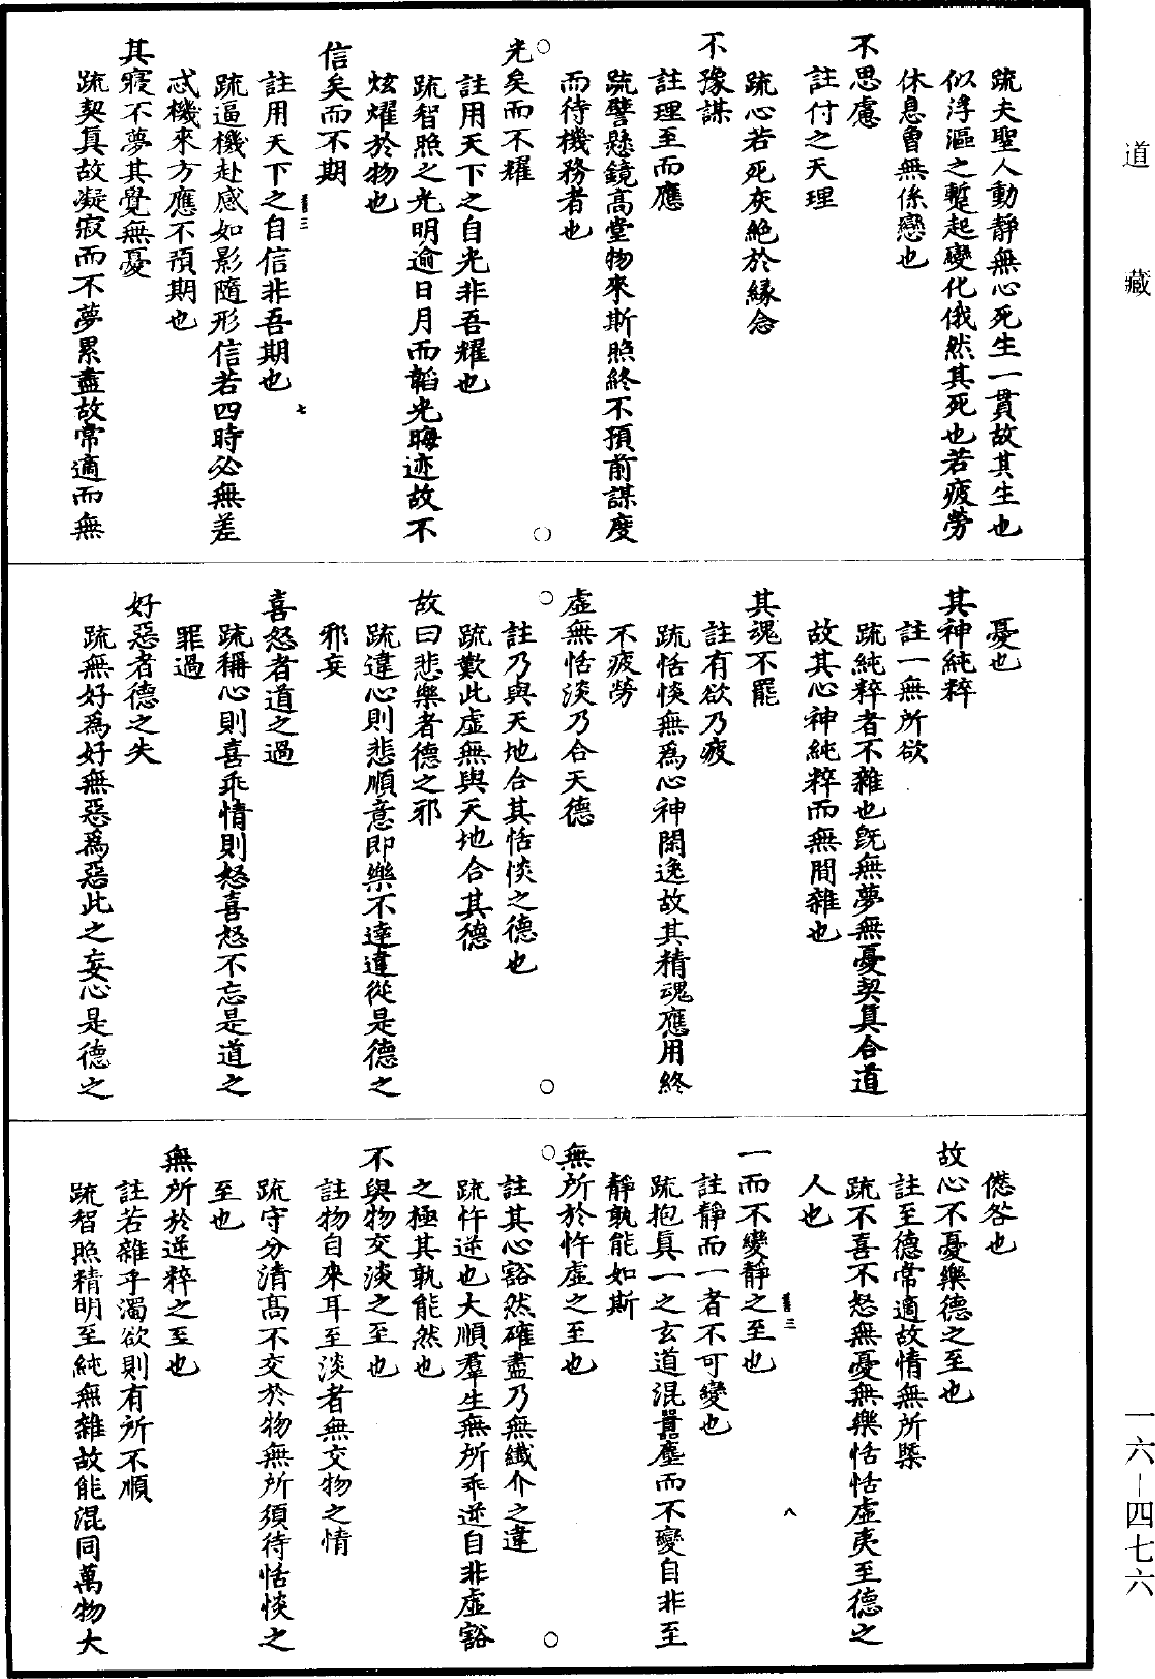 道藏
疏夫聖人動靜無心死生一貫故其生也
似浮漚之蹔起變化俄然其死也若疲勞
休息曾無係戀也
不思慮
註付之天理
疏心若死灰絶於緣念
不豫謀
註理至而應
疏譬懸鏡高堂物來斯照終不預前謀度
而待機務者也
光矣而不耀
註用天下之自光非吾耀也
疏智照之光明逾日月而韜光晦迹故不
炫燿於物也
信矣而不期
註用天下之自信非吾期也
疏逼機赴感如影隨形信若四時必無差
忒機來方應不預期也
其寢不夢其覺無憂
疏契真故凝寂而不夢累盡故常適而無
憂也
其神純粹
註一無所欲
疏純粹者不雜也旣無夢無憂契真合道
故其心神純粹而無間雜也
其魂不罷
註有欲乃疲
疏恬惔無爲心神閑逸故其精魂應用終
不疲勞
虛無恬淡乃合天德
註乃與天地合其恬惔之德也
疏歎此虛無與天地合其德
故曰悲樂者德之邪
疏違心則悲順意即樂不達違從是德之
邪妄
喜怒者道之過
疏稱心則喜乖情則怒喜怒不忘是道之
罪過
好惡者德之失
疏無好爲好無惡爲惡此之妄心是德之
僽咎也
故心不憂樂德之至也
註至德常適故情無所槩
疏不喜不怒無憂無樂恬恬虛夷至德之
人也
一而不變靜之至也
註靜而一者不可變也
疏抱真一之玄道混囂塵而不變自非至
靜孰能如斯
無所於忤虛之至也
註其心豁然確盡乃無纖介之違
疏忤逆也大順羣生無所乖逆自非虛豁
之極其孰能然也
不與物交淡之至也
註物自來耳至淡者無交物之情
疏守分清高不交於物無所須待恬惔之
至也
無所於逆粹之至也
註若雜乎濁欲則有所不順
疏智照精明至純無雜故能混同萬物大
一六－四七六